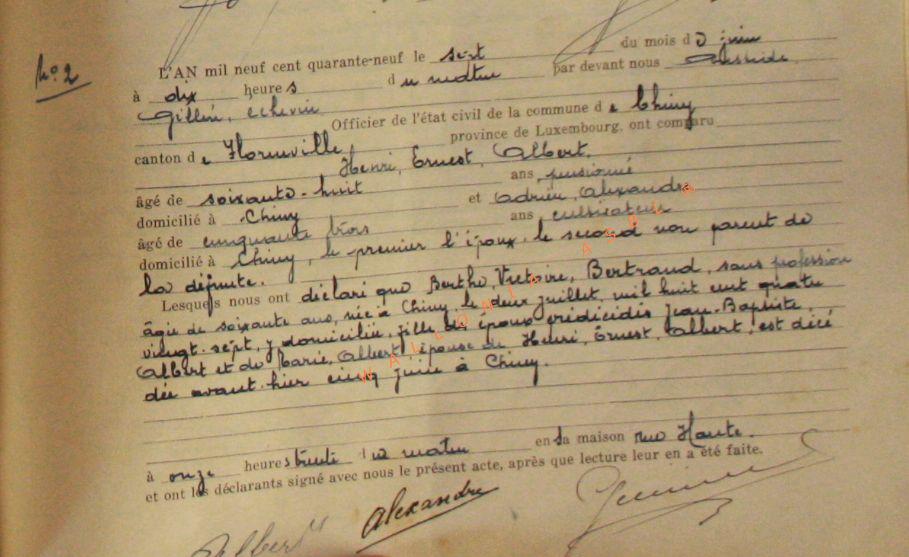 No 2
L'AN mil neuf cent quarante-neuf le sept du mois d juin
à dix heure s d u matin par devant nous
Gillin, échevin Officier de l'état civil de la commune d e Chiny
canton d e Florenville province de Luxembourg, ont comparu
Henri, Ernest, Albert,
âgé de soixante-huit ans, pensionné
domicilié à Chiny et Adrien, Alexandre
âgé de cinquante trois ans, cultivateur
domicilié à Chiny, le premier l'époux, le second non parent de
la défunte.
Lesquels nous ont déclaré que Berthe, Victoire, Bertrand, sans profession
âgée de soixante ans, née à Chiny, le deux juillet, mil huit cent quatre
vingt-sept, y domiciliée, fille de époux prédécédés Jean-Baptiste
Albert et de Marie, Albert, épouse de Henri, Ernest, Albert, est décé
dée avant-hier cinq juin à Chiny.
à onze heure s trente d u matin en sa maison rue Haute.
et ont les déclarants signé avec nous le présent acte, après que lecture leur en a été faite.
Albert Alexandre
WALLONIA ASBL